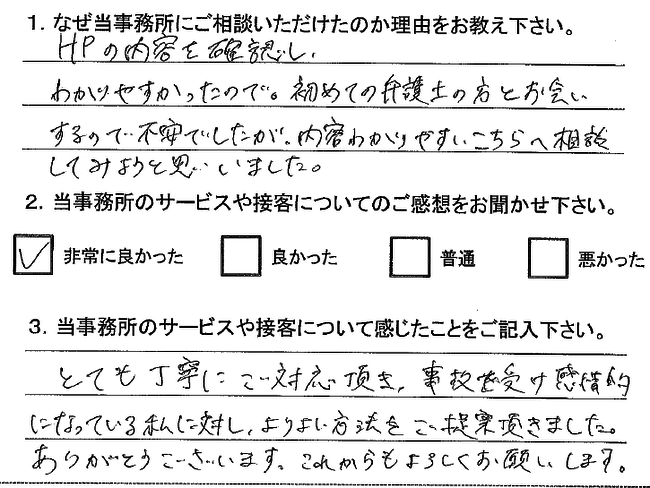 1. なぜ当事務所にご相談いただけたのか理由をお教え下さい。
HPの内容を確認し、
わかりやすかったので。初めての弁護士の方とお会い
するので不安でしたが、内容わかりやすいこちらへ相談
してみようと思いいました。
2. 当事務所のサービスや接客についてのご感想をお聞かせ下さい。
非常に良かった 良かった 普通 悪かった
3. 当事務所のサービスや接客について感じたことをご記入下さい。
とても丁寧にご対応頂き、事故を受け感情的
になっている私に対し、よりよい方法をご提案頂きました。
ありがとうございます。これからもよろしくお願いします。